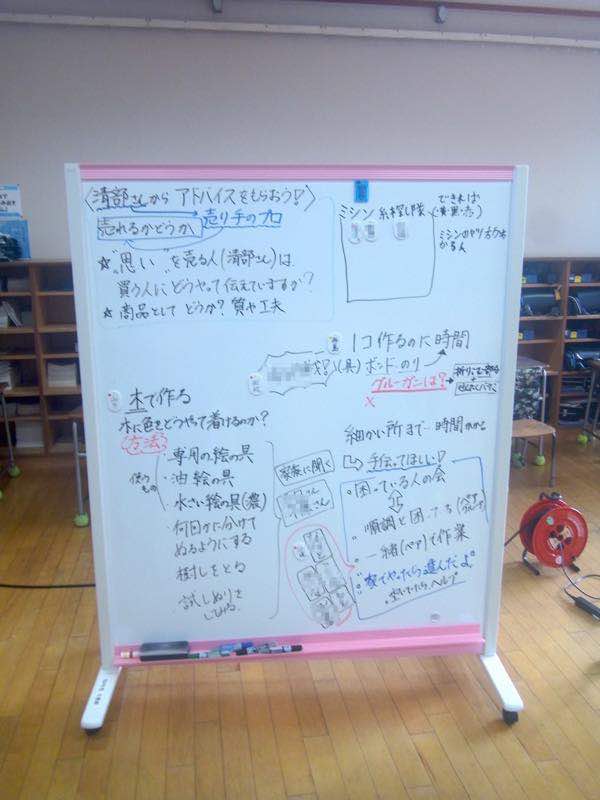 〈清部さんからアドバイスをもらおう!〉
売れるかどうか 売り手のプロ
☆"思い"を売る人(清部さん)は
買う人にどうやって伝えていますか?
☆商品としてどうか?質や工夫
ミシン 糸探し隊
できれば
ミシンのやり方
1コ作るのに時間
(具)ボンド のり
グルーガンは?
×
木で作る
木に色をどうやって着けるのか?
方法
使うもの
・専用の絵の具
・油絵の具
・水さい絵の具(濃)
・何日かに分けて
ぬるようにする
・樹しをとる
試しぬりを
してみる。
家族に聞く
さん
さん
細かい所まで…時間かかる
手伝ってほしい!
・困っている人の会
・順調と困ってる
・一緒(ペア)で作業
"たらヘルプ